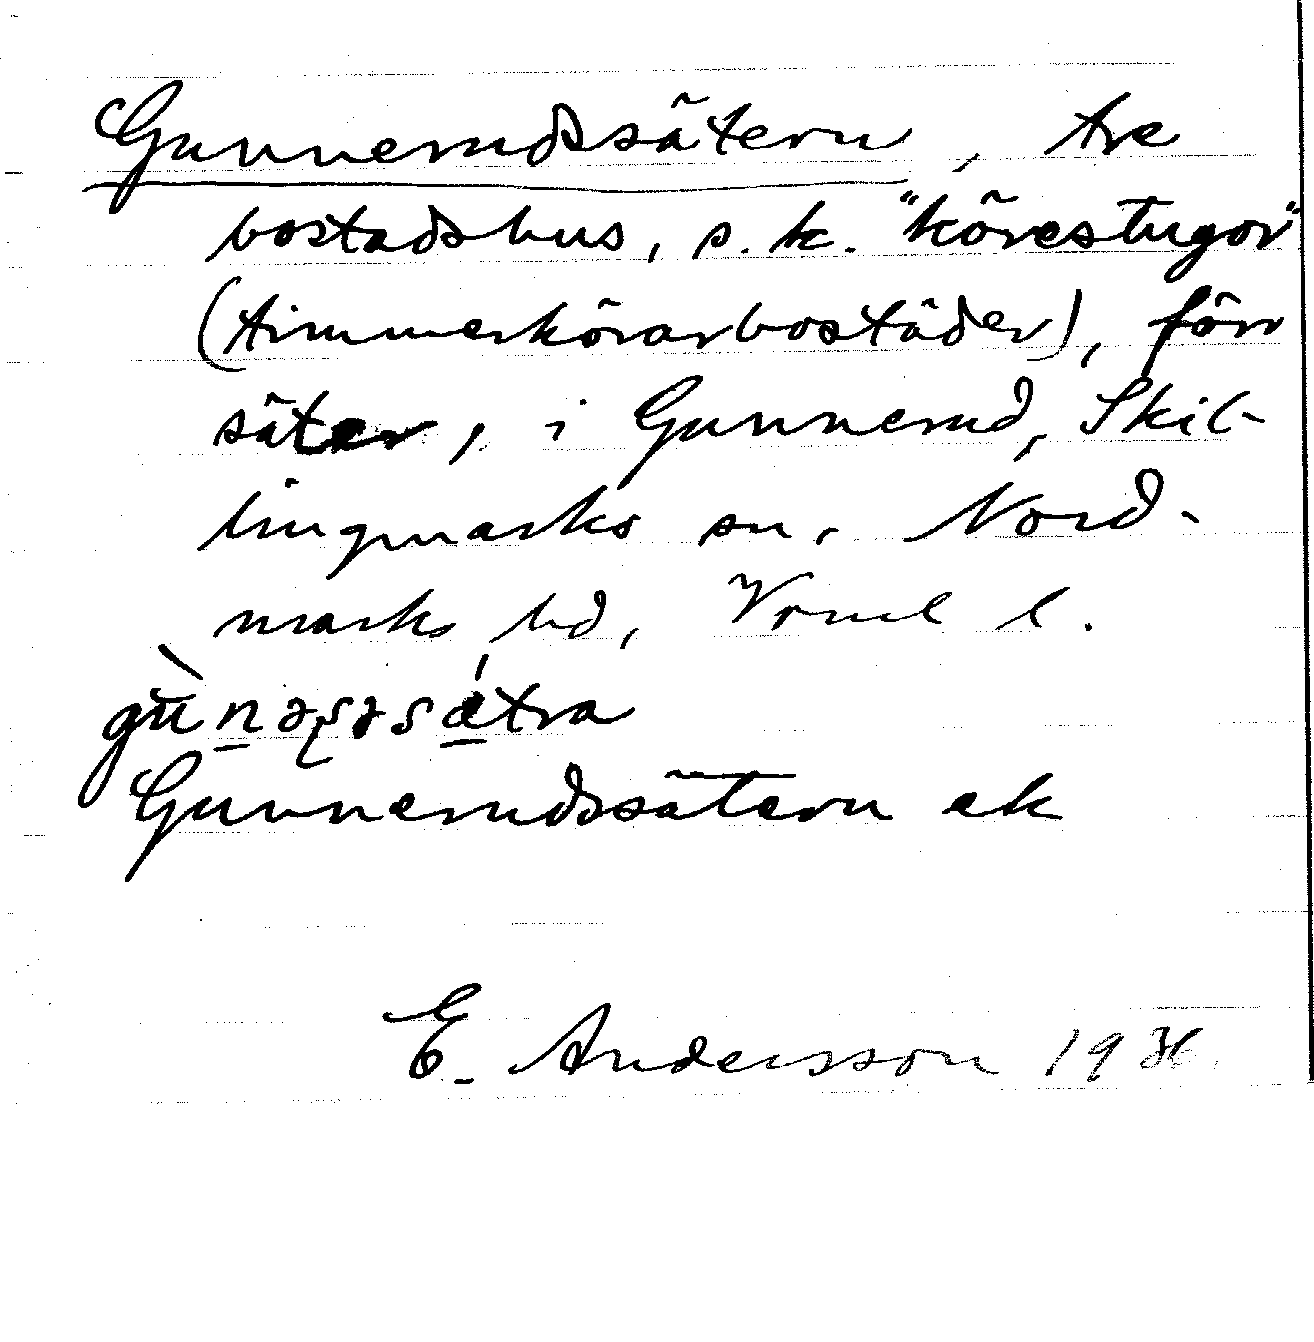 Gunnerudssätern, tre
bostadshus, s.k. "körestugor"
(timmerkörarbostäder), förr
säter, i Gunnerud, Skil-
lingmarks sn, Nord-
marks hd, Vrml l.
Gunnerudssätern ek
E. Andersson 1936.